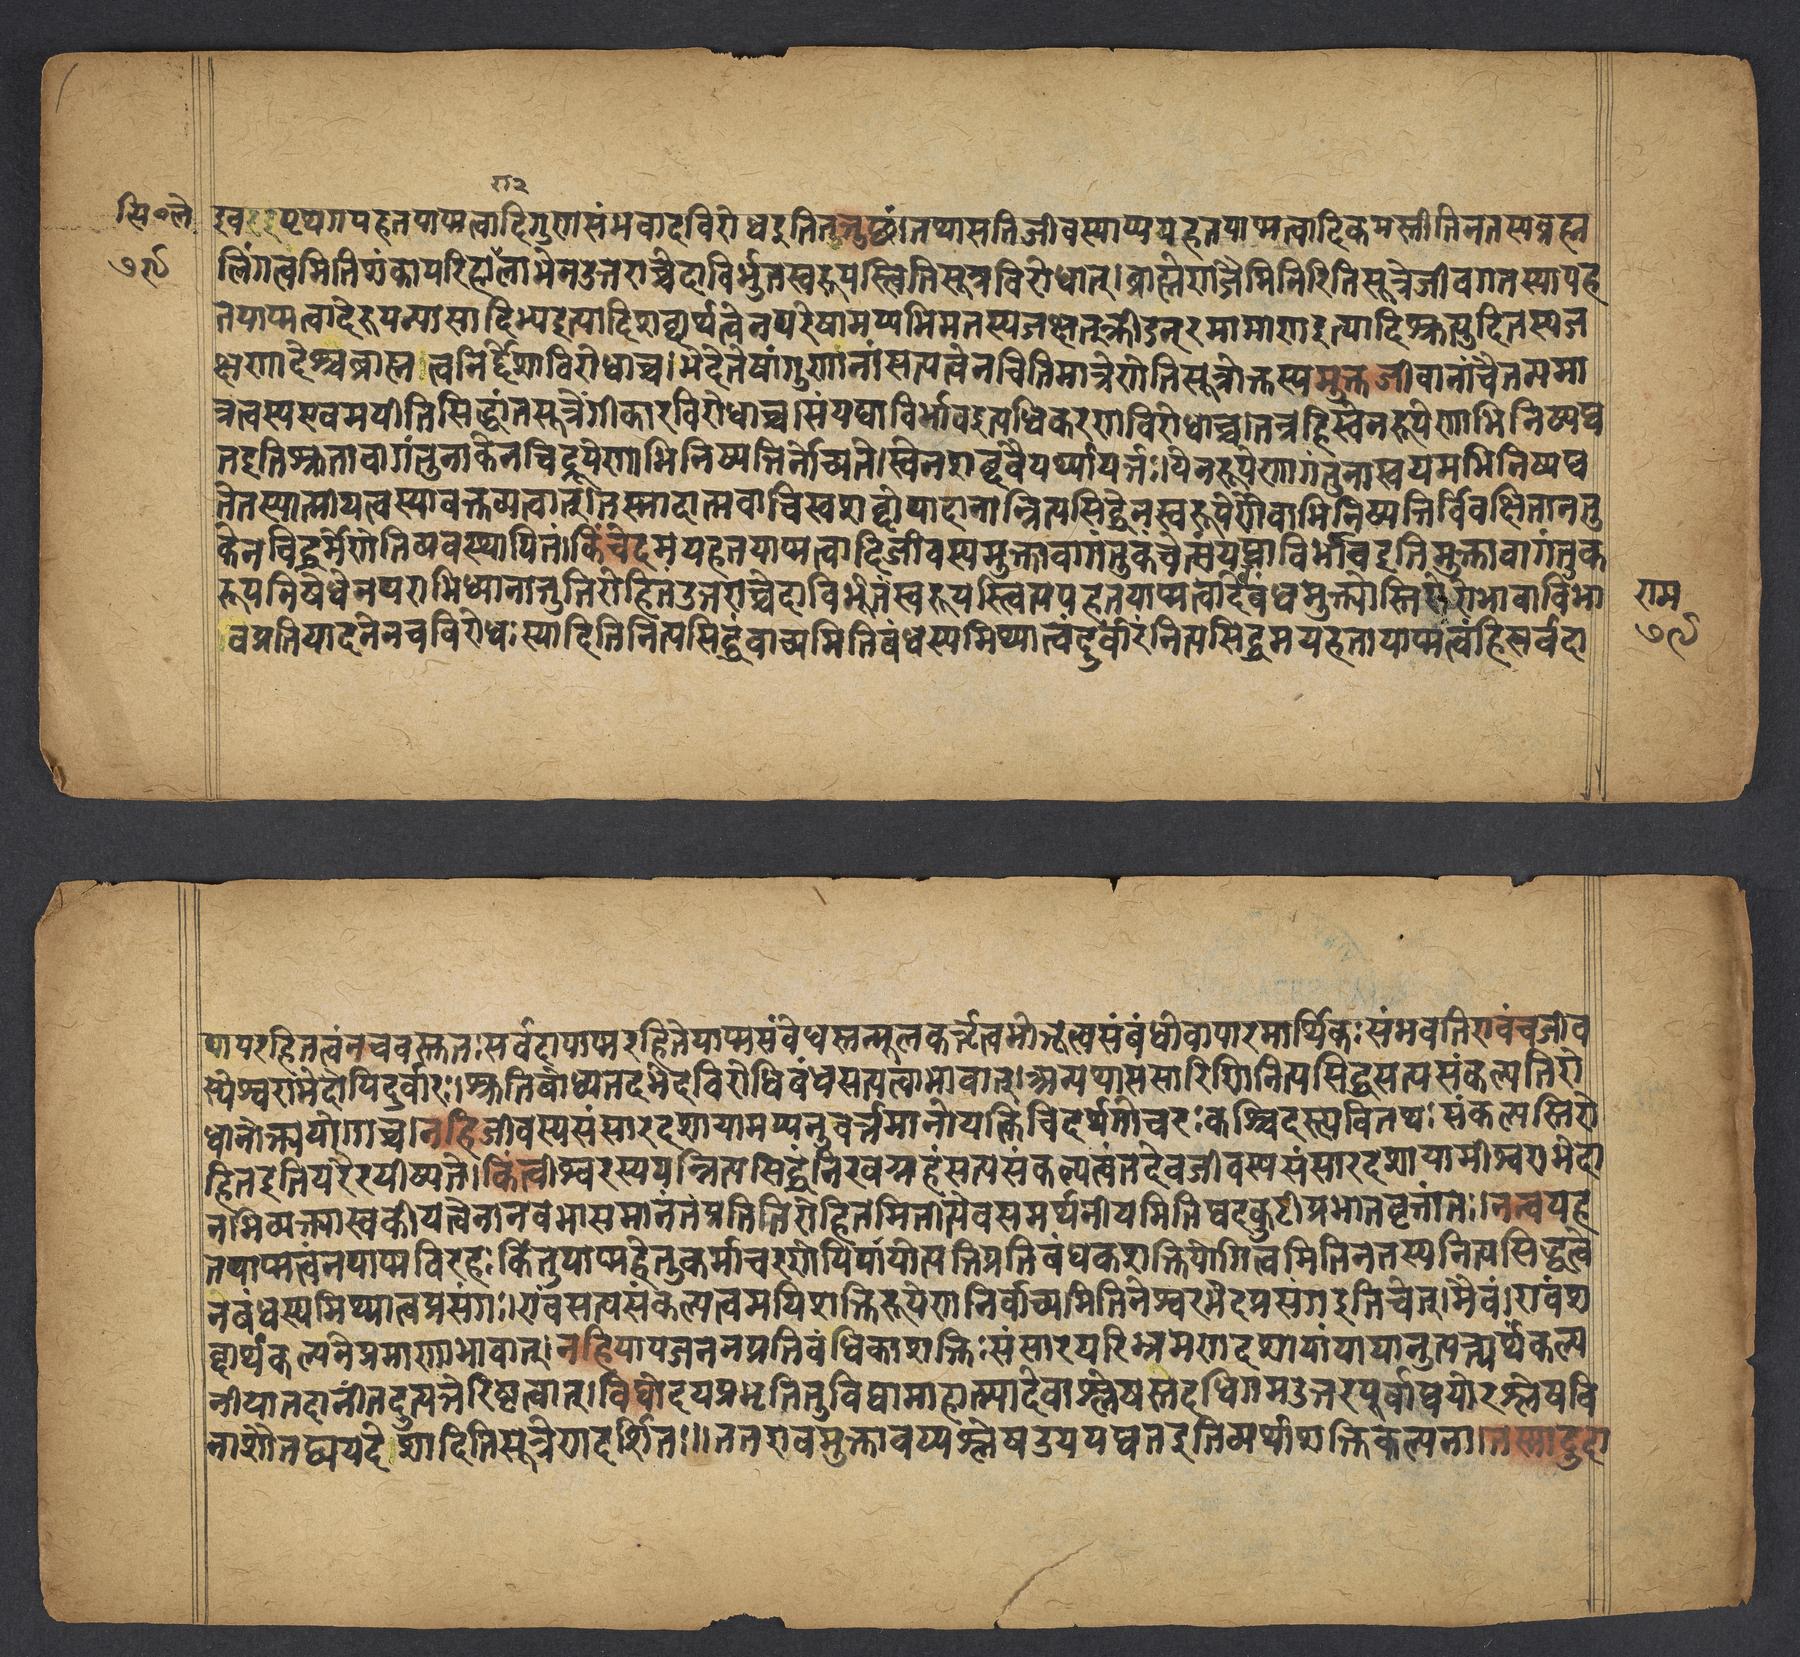 ग२
सि०ले
७९
इवइइपृथगपहतपाप्मत्वादिगुणासंभवादविरोधइतितुतुछं।तथासतिजीवस्याप्यपहतपाप्मत्वादिकमस्तीतिनतस्यब्रह्म
लिंगत्वमितिशंकापरिहालाभेनउत्तराच्चेदाविर्भुतस्वरूपस्त्वितिसूत्रविरोधात्।ब्राह्मेणजैमिनिरितिसूत्रेजीवगतस्यापह
तपाप्मत्वादेरूपन्यासादिभ्यइत्यादिशब्दार्थत्वेनपरेषामप्यभिमतस्यजक्षत्क्रीडन्रममाणइत्यादिश्रुत्युदितस्यज
क्षणादेश्चब्राह्मत्वनिर्द्देशविरोधाच्च।भेदेतेषांगुणानांसत्यत्वेनचितिमात्रेणेतिसूत्रोक्तस्यमुक्तजीवानांचैतन्यमा
त्रत्वस्यएवमपीतिसिद्धांतसूत्रेंगीकारविरोधाच्च।संपद्याविर्भावइत्यधिकरणविरोधाच्च।तत्रहिस्वेनरूपेणाभिनिष्पद्य
तइतिश्रुतावागंतुनाकेनचिद्रूपेणाभिनिष्पत्तिर्नोच्यते।स्वेनशब्दवैयर्थ्यापत्तेः।येनरूपेणागंतुनास्वयमभिनिष्पद्य
तेतस्यात्मीयत्वस्यावक्तव्यत्वात्।तस्मादात्मवाचिस्वशब्दोपादानान्नित्यसिद्धेनस्वरूपेणैवाभिनिष्पत्तिर्विवक्षितानतु
केनचिद्धर्मेणेतिव्यवस्थापितं।किंचेदमपहतपाप्मत्वादिजीवस्यमुक्तावागंतुकंचेत्संपद्याविर्भावइतिमुक्तावागंतुक
रूपनिषेधेनपराभिध्यानात्तुतिरोहितउत्तराच्चेदाविर्भूतस्वरूपस्त्वित्यपहतपाप्मत्वादेर्बंधमुक्त्योस्तिरोभावाविर्भा
वप्रतिपादनेनचविरोधःस्यादितिनित्यसिद्धंवाच्यमितिबंधस्यमिथ्यात्वंदुर्वारंनित्यसिद्धमपहतापाप्मत्वंहिसर्वदा
राम
७९
पापरहितत्वंनचवस्तुतःसर्वदापाप्मरहितेपाप्मसंबंधस्तन्मूलकर्त्तृत्वभोक्तृत्वसंबंधोवापारमार्थिकःसंभवतिएवंचजीव
स्येश्वराभेदोपिदुर्वारः।श्रुतिबोध्यतदभेदविरोधिबंधसत्यत्वाभावात्।अन्यथासंसारिणिनित्यसिद्धसत्यसंकल्पतिरो
धानोक्त्ययोगाच्च।नहिजीवस्यसंसारदशायामप्यनुवर्त्तमानोयत्किंचिदर्थगोचरःकश्चिदस्त्यवितथःसंकल्पस्तिरो
हितइतिपरैरपीष्यते।किंत्वीश्वरस्ययन्नित्यसिद्धंनिरवग्रहंसत्यसंकल्पत्वंतदेवजीवस्यसंसारदशायामीश्वराभेदा
नभिव्यक्त्यास्वकीयत्वेनानवभासमानंतंप्रतितिरोहितमितीत्येवसमर्थनीयमितिघट्टकुटीप्रभातवृत्तांतः।नन्वपह
तपाप्मत्वंनपाप्मविरहःकिंतुपाप्महेतुकर्माचरणेपिपापोत्पत्तिप्रतिबंधकशक्तियोगित्वमितिनतस्यनित्यसिद्धत्वे
नबंधस्यमिथ्यात्वप्रसंगः।एवंसत्यसंकल्पत्वमपिशक्तिरूपेणनिर्वाच्यमितिनेश्वराभेदप्रसंगइतिचेत्।मैवं।एवंश
ब्दार्थकल्पनेप्रमाणाभावात्।नहिपापजननप्रतिबंधिकाशक्तिःसंसारपरिभ्रमणदशायांपापानुत्पत्त्यर्थंकल्प
नीयातदानींतदुत्पत्तेरिष्टत्वात्।विद्योदयप्रभृतितुविद्यामाहात्म्यादेवाश्लेषस्तदधिगमउत्तरपूर्वाघयोरश्लेषवि
नाशौतद्व्यपदेशादितिसूत्रेणदर्शितः॥ततएवमुक्तावप्यश्लेषउपपद्यतइतिव्यर्थाशक्तिकल्पना।तस्मादुदा